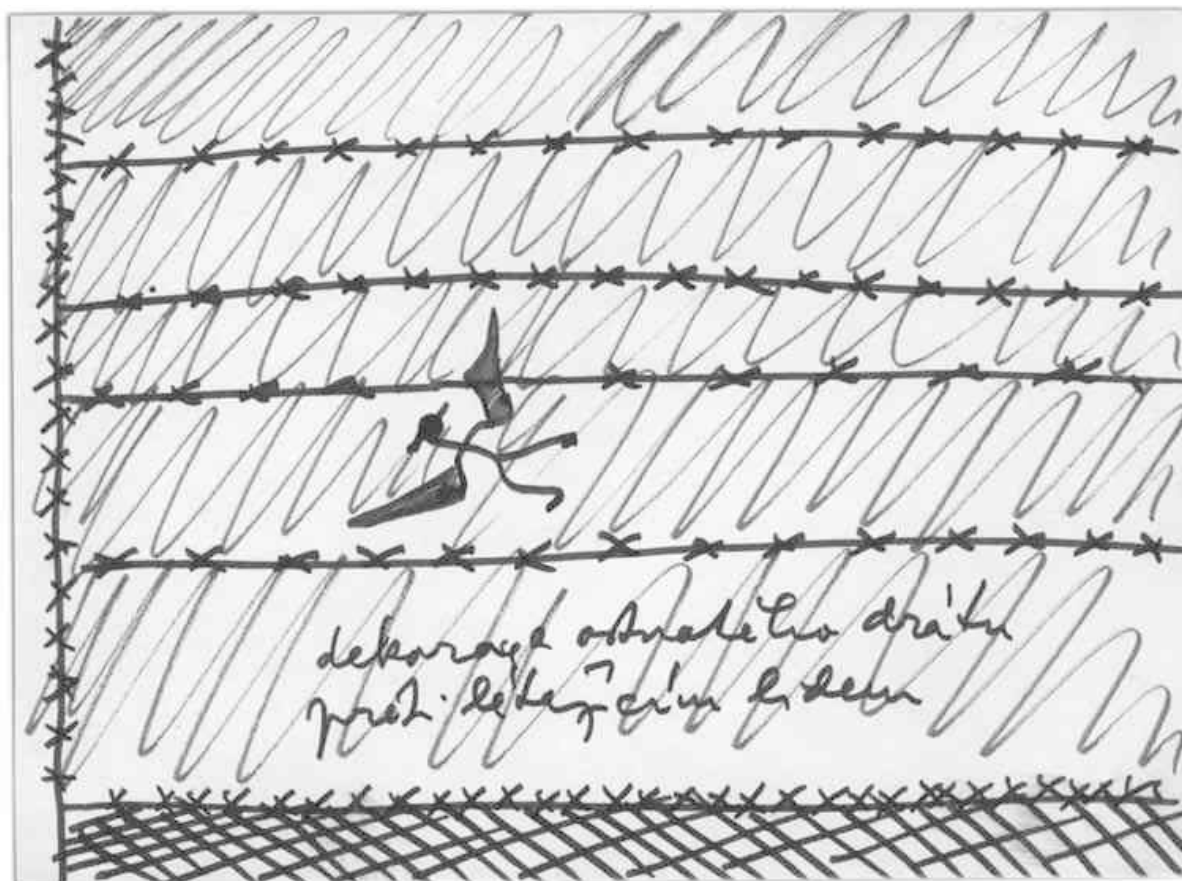 dekorace ostnatého drátu
proti létajícím lidem